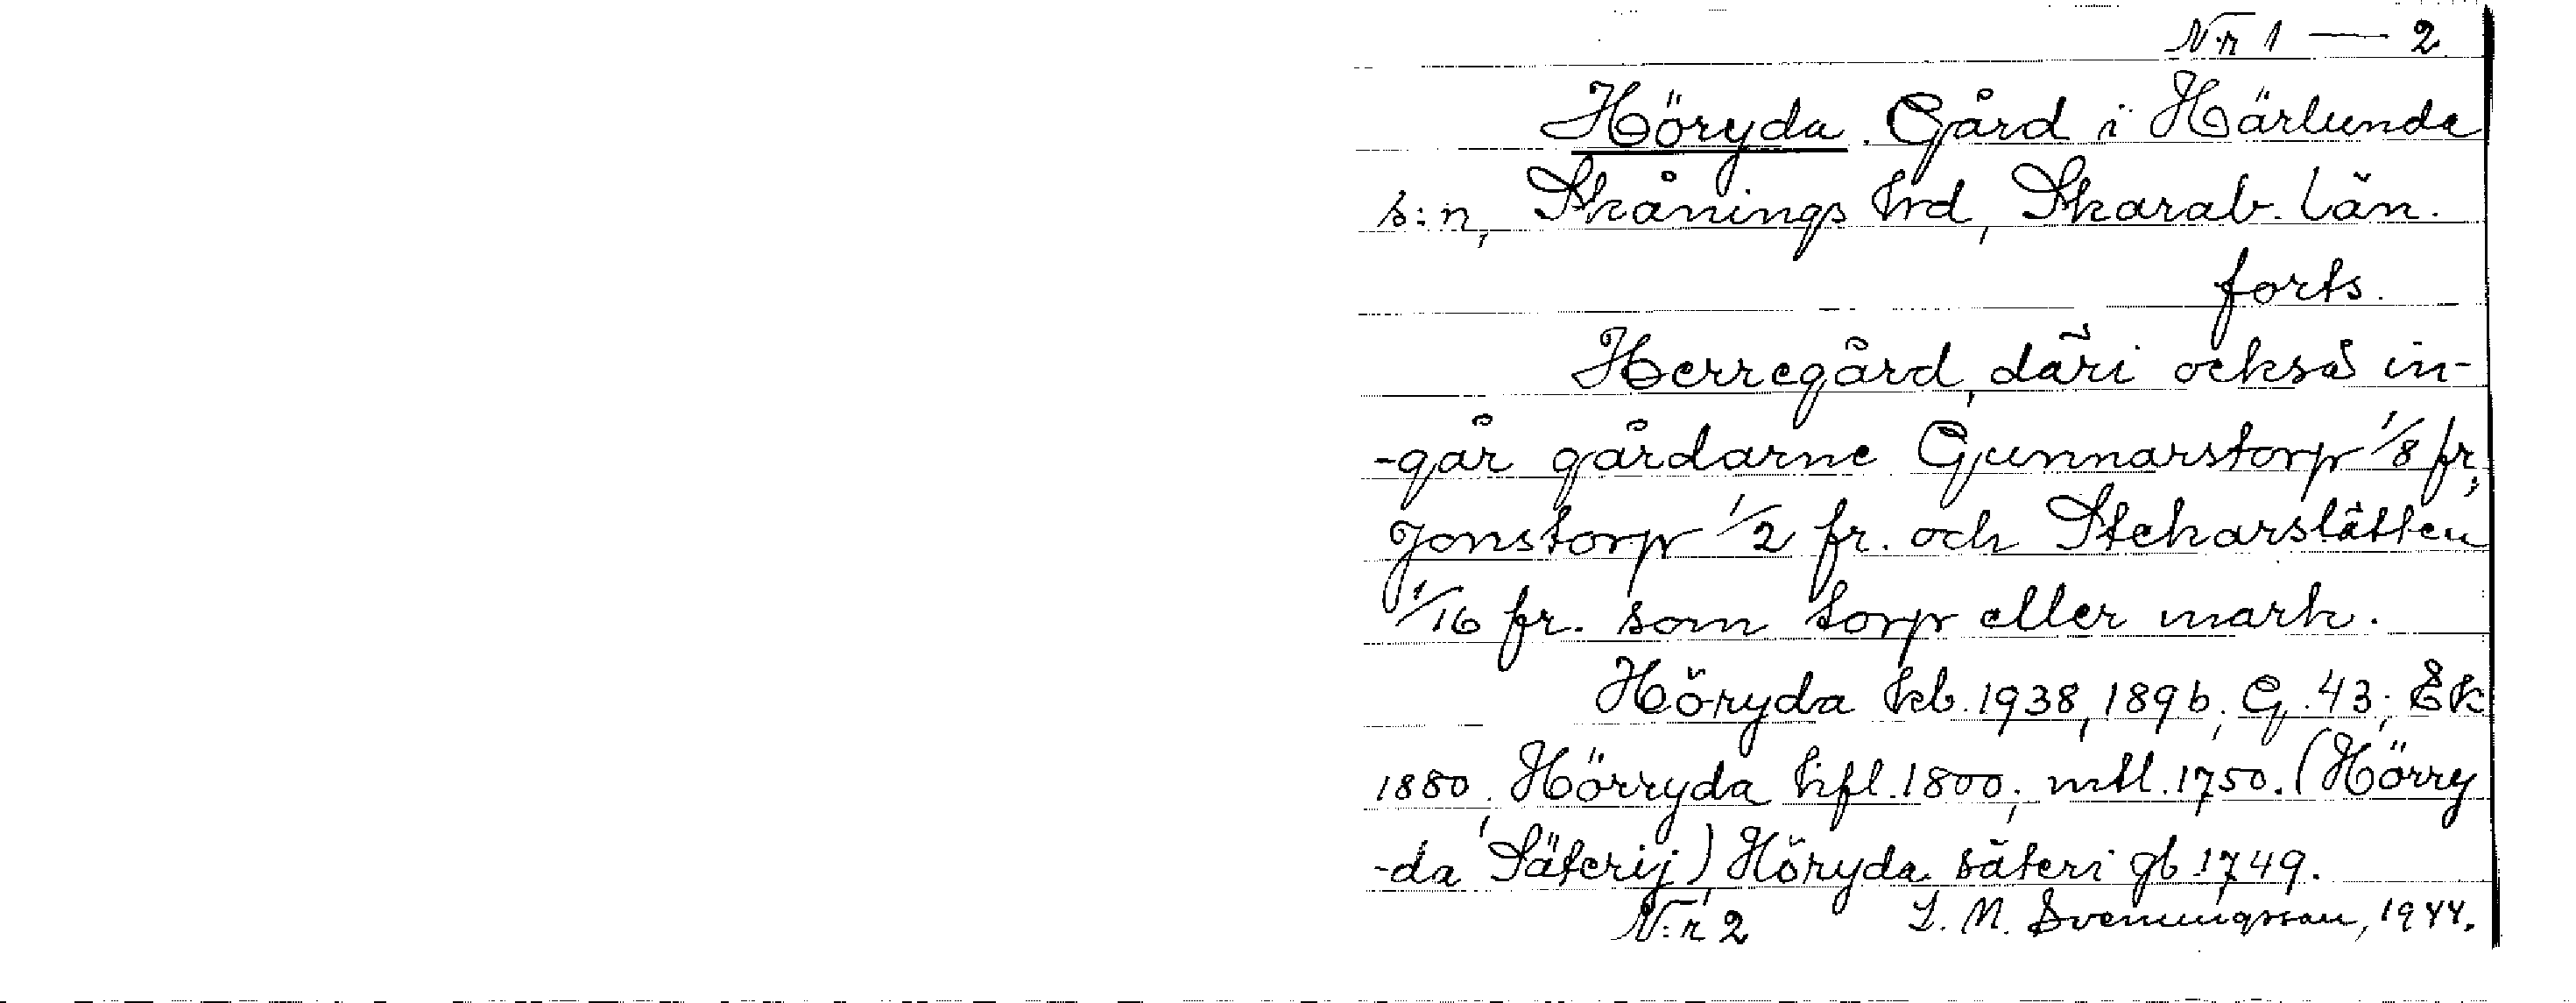 N:r 1 — 2
Höryda. Gård i Härlunda
s:n, Skånings hrd, Skarab. län.
forts.
Herregård, däri också in-
-går gårdarne Gunnarstorp 1/8 fr,
Jonstorp 1/2 fr. och Stekarslätten
1/16 fr. som torp eller mark.
Höryda kb. 1938, 1896; G. 43; EK
1880; Hörryda hfl. 1800; mtl. 1750. (Hörry
-da Säterij), Höryda säteri gb 1749.
N:r 2 L. M. Svenungsson, 1944.